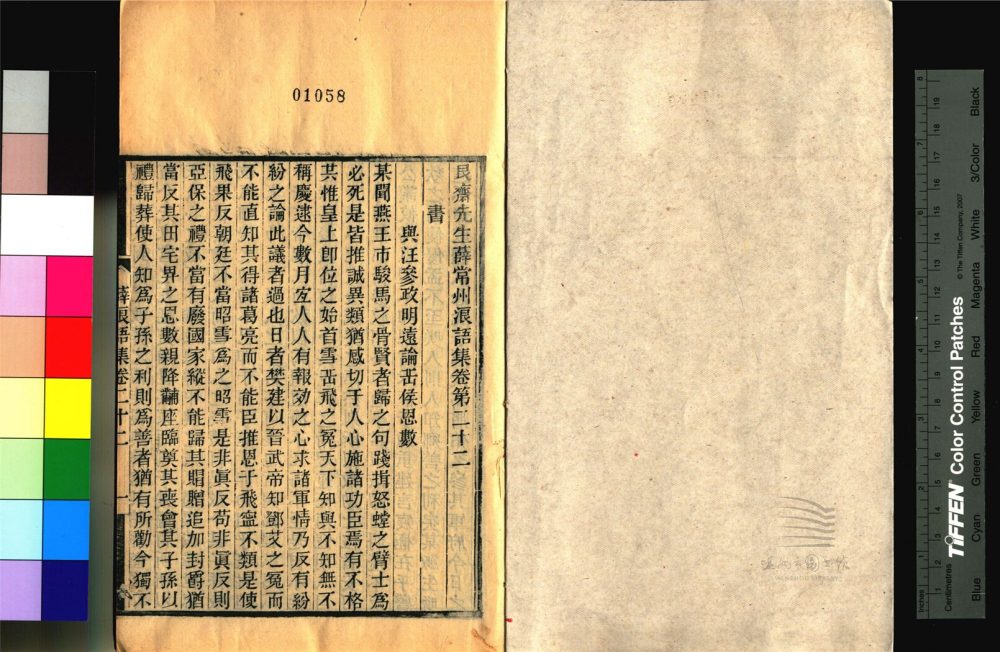 01058
艮齋先生薛常州浪語集卷第二十二
書
與汪參政明遠論岳侯恩數
某聞燕王市駿馬之骨賢者歸之句踐揖怒螳之臂士爲
必死是皆推誠異類猶感切于人心施諸功臣焉有不格
共惟皇上卽位之始首雪岳飛之冤天下知與不知無不
稱慶逮今數月宜人人有報効之心求諸軍情乃反有紛
紛之論此議者過也日者樊建以晉武帝知鄧艾之冤而
不能直知其得諸葛亮而不能臣推恩于飛寧不類是使
飛果反朝廷不當昭雪爲之昭雪是非眞反苟非眞反則
亞保之禮不當有廢國家縱不能歸其賵贈追加封爵猶
當反其田宅畀之恩數親降黼座臨奠其喪會其子孫以
禮歸葬使人知爲子孫之利則爲善者猶有所勸今獨不
薛浪語集卷二十二
一
Inches
Centimetres
TIFFEN Color Control Patches
© The Tiffen Company, 2007
Blue
Cyan
Green
Yellow
Red
Magenta
White
3/Color
Black